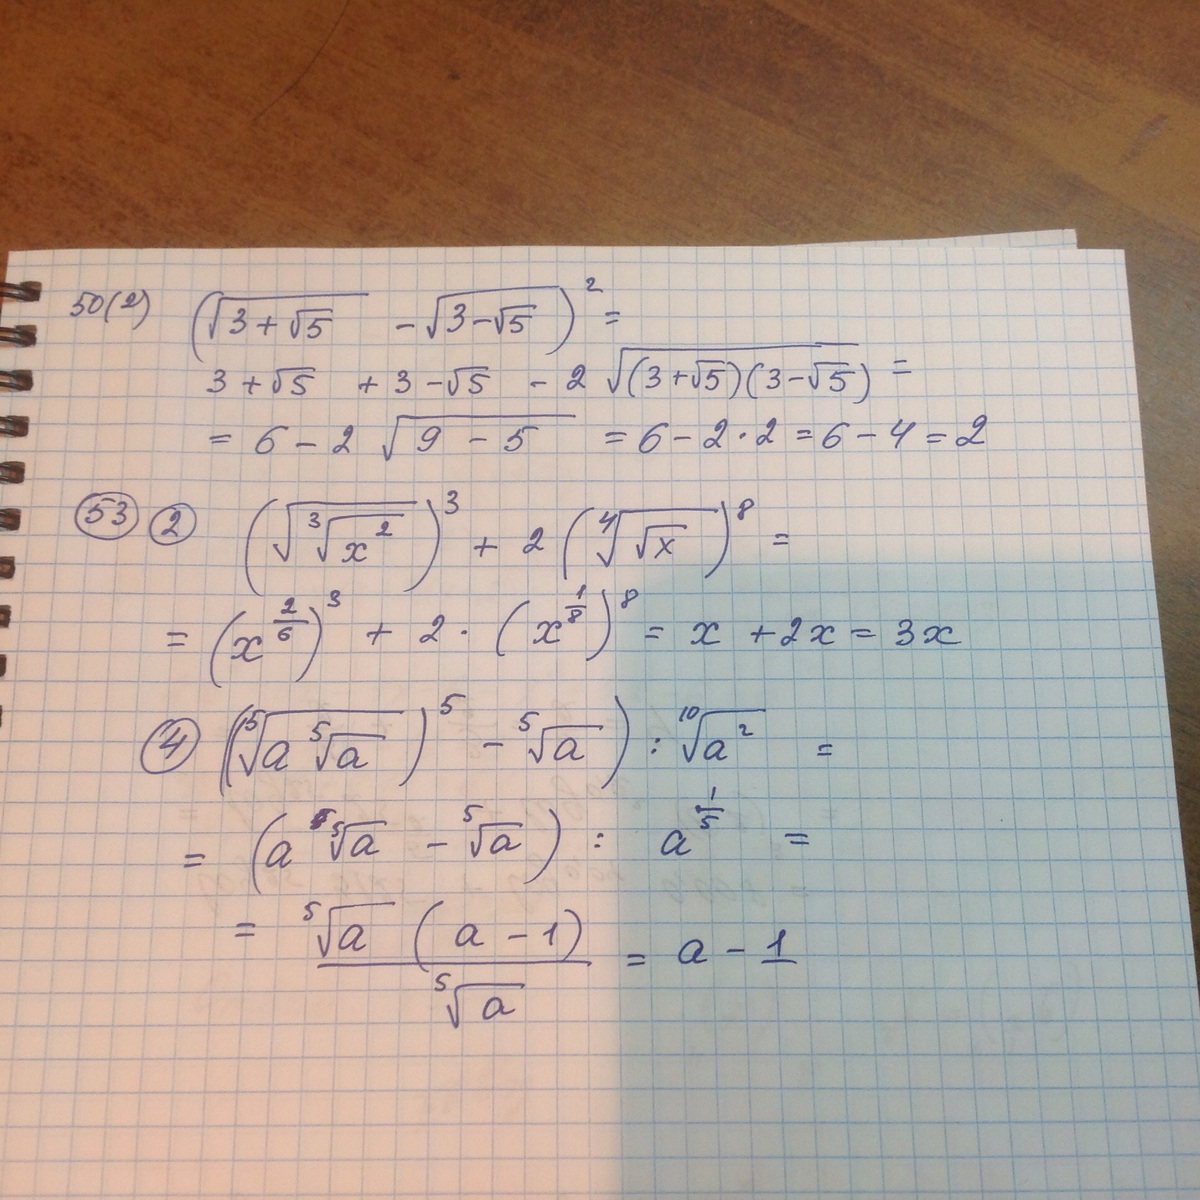 50(2) (√(3+√5) - √(3-√5))² =
3+√5 + 3-√5 - 2 √((3+√5)(3-√5)) =
= 6 - 2 √(9 - 5) = 6 - 2·2 = 6 - 4 = 2
53 2 (√(∛(x²)))³ + 2 (⁴√(√x))⁸ =
= (x^(2/6))³ + 2 · (x^(1/8))⁸ = x + 2x = 3x
4 ((⁵√(a ⁵√a))⁵ - ⁵√a) : ¹⁰√(a²) =
= (a ⁵√a - ⁵√a) : a^(1/5) =
= ⁵√a (a - 1) / ⁵√a = a - 1